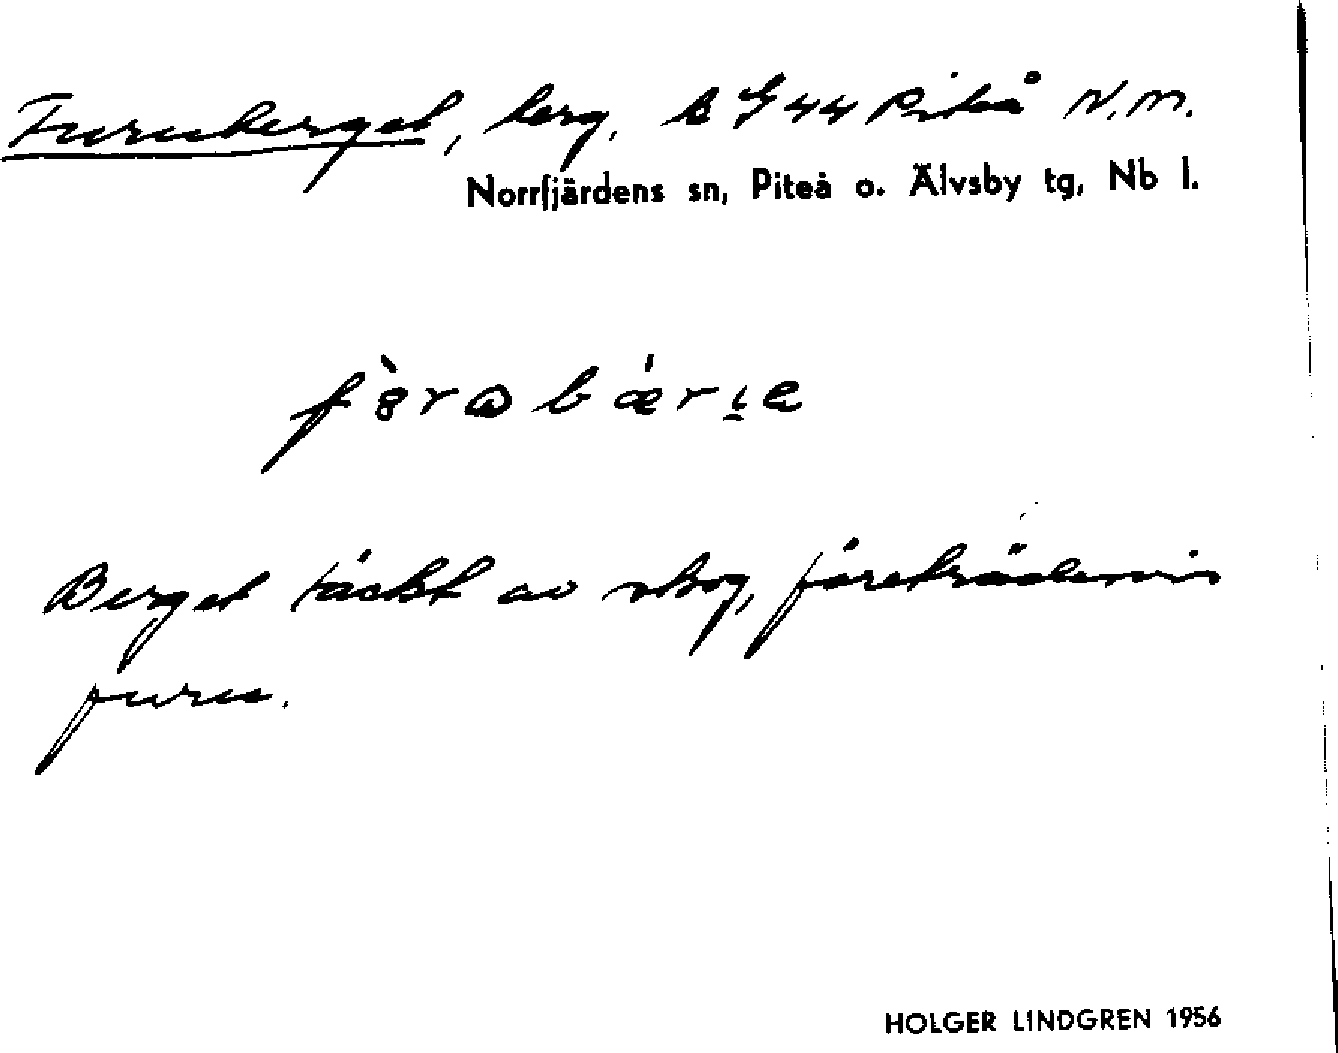 Furuberget, berg. B G 44 Piteå N.M.
Norrfjärdens sn, Piteå o. Älvsby tg, Nb l.
Berget täckt av skog, företrädesvis
furu.
HOLGER LINDGREN 1956